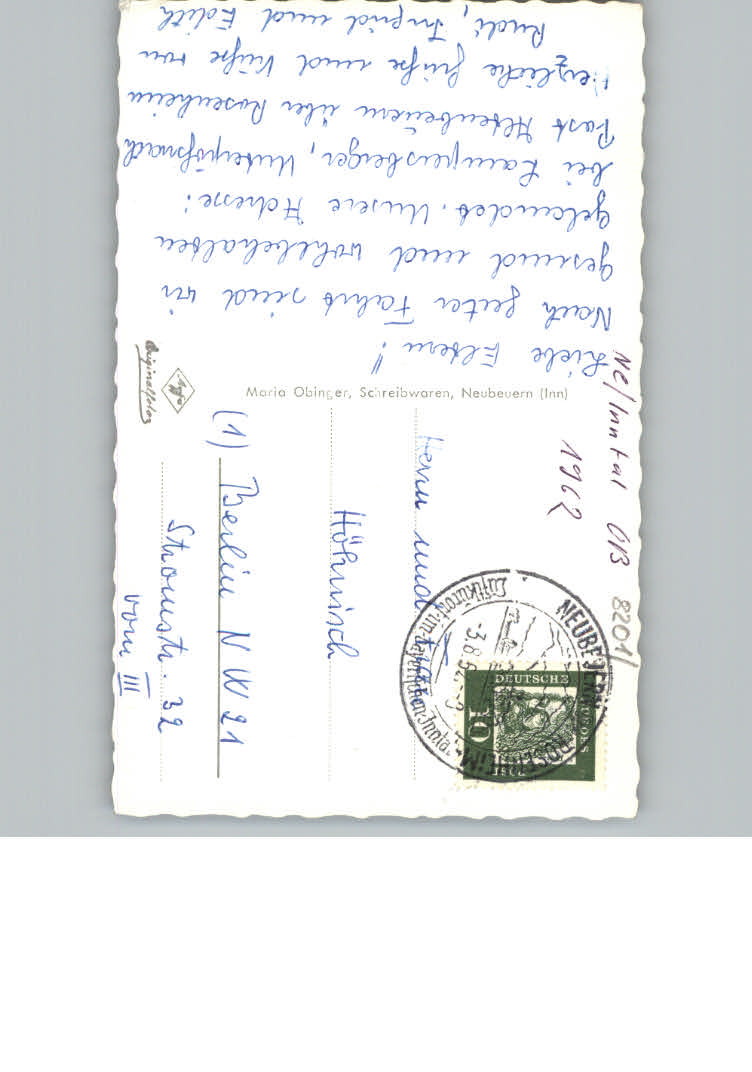 Liebe Eltern!
Nach guter Fahrt sind wir
gesund und wohlbehalten
gelandet. Unsere Adresse:
bei Lampersberger, Unterpößnach
Post Altenbeuern über Rosenheim
Herzliche Grüße und Küsse von
Rudi, Ingrid und Edith
Maria Obinger, Schreibwaren, Neubeuern (Inn)
Agfa
Originalfoto
Herrn und Frau
Höhnisch
(1) Berlin NW 21
Stromstr. 32
vorn III
Ne/Inntal OB 8201/
1962
DEUTSCHE
BUNDESPOST
10
NEUBEUERN
ROSENHEIM
-3.8.62.-9
Luftkurort im bayerischen Inntal